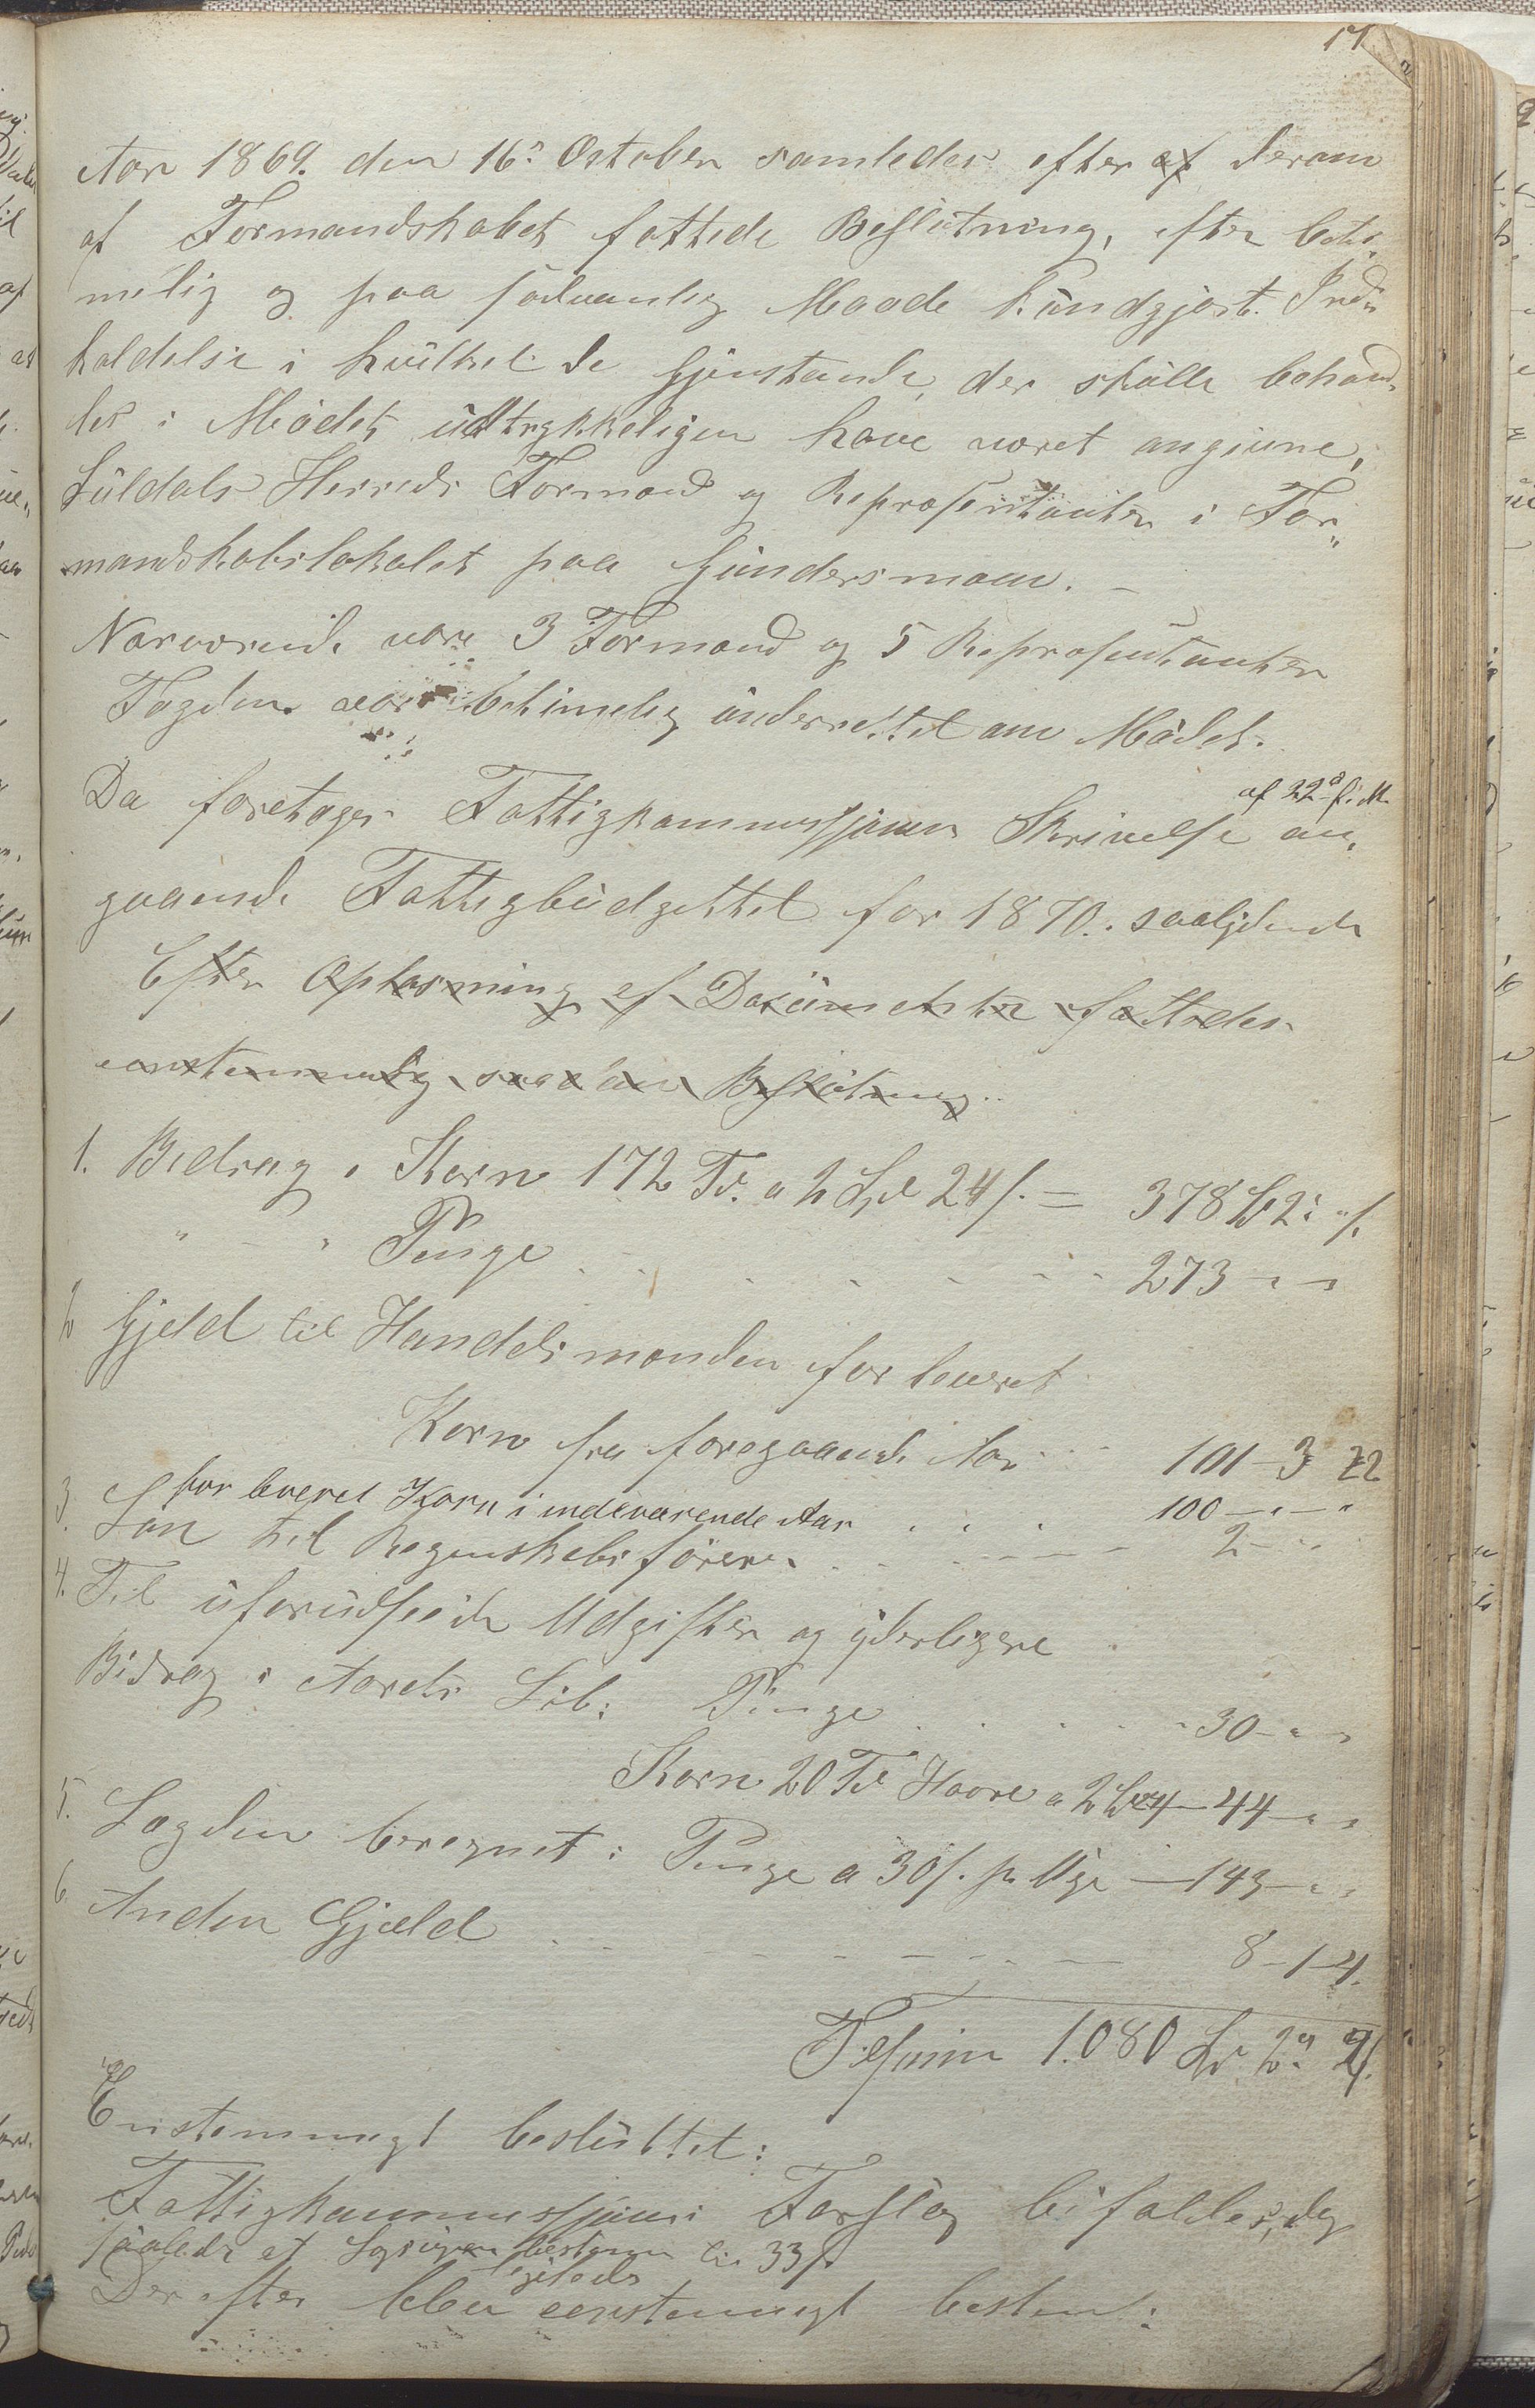 17
Aar 1869. den 16de October samledes efter af derom
af Formandskabet fattede Beslutning, efter beti-
melig og paa sædvanlig Maade kundgjort. Inde-
holdelse i hvilket de Gjenstande, der skulle behand-
les i Mødet udtrykkeligen have været angivne,
Suldals Herreds Formænd og Repræsentanter i For-
mandskabslokalet paa Gundersmoen. -
Nærværende vare 3 Formænd og 5 Repræsentanter
Fogden var betimelig underrettet om Mødet.
af 22de f. M.
Da foretoges Fattigkommissjonens Skrivelse an-
gaaende Fattigbudgettet for 1870. saalydende
Efter Oplæsning af Dokumentet fattedes
eenstemmelig saadan Beslutning.
1. Bidrag i Korn 172 Td. a 2 Spd 24 s. = 378 Spd 2 " s.
" - " Penge 273 - " "
2 Gjeld til Handelsmanden for leveret
Korn fra foregaaende Aar 101 - 3 22
for leveret Korn i indeværende Aar . . . 100 - " - "
3. Løn til Regnskabsføreren 2 - " "
4. Til uforudseede Udgifter og yderligere
Bidrag i Aarets Løb: Penge 30 - " "
Korn 20 Td Havre a 2 Spd 24 - 44 - " "
5. Lægden beregnet i Penge a 30 s. pr Uge - 143 - " "
6. Anden Gjæld 8 - 1 - 4.
Tilsum 1.080 Spd 2 " 2 s.
Enstemmigt besluttet:
Fattigkommissjonens Forslag bifaldes, dog
saaledes at Lægdugen bestemm til 33 s.
ligeledes
Derefter blev eenstemmigt bestem: